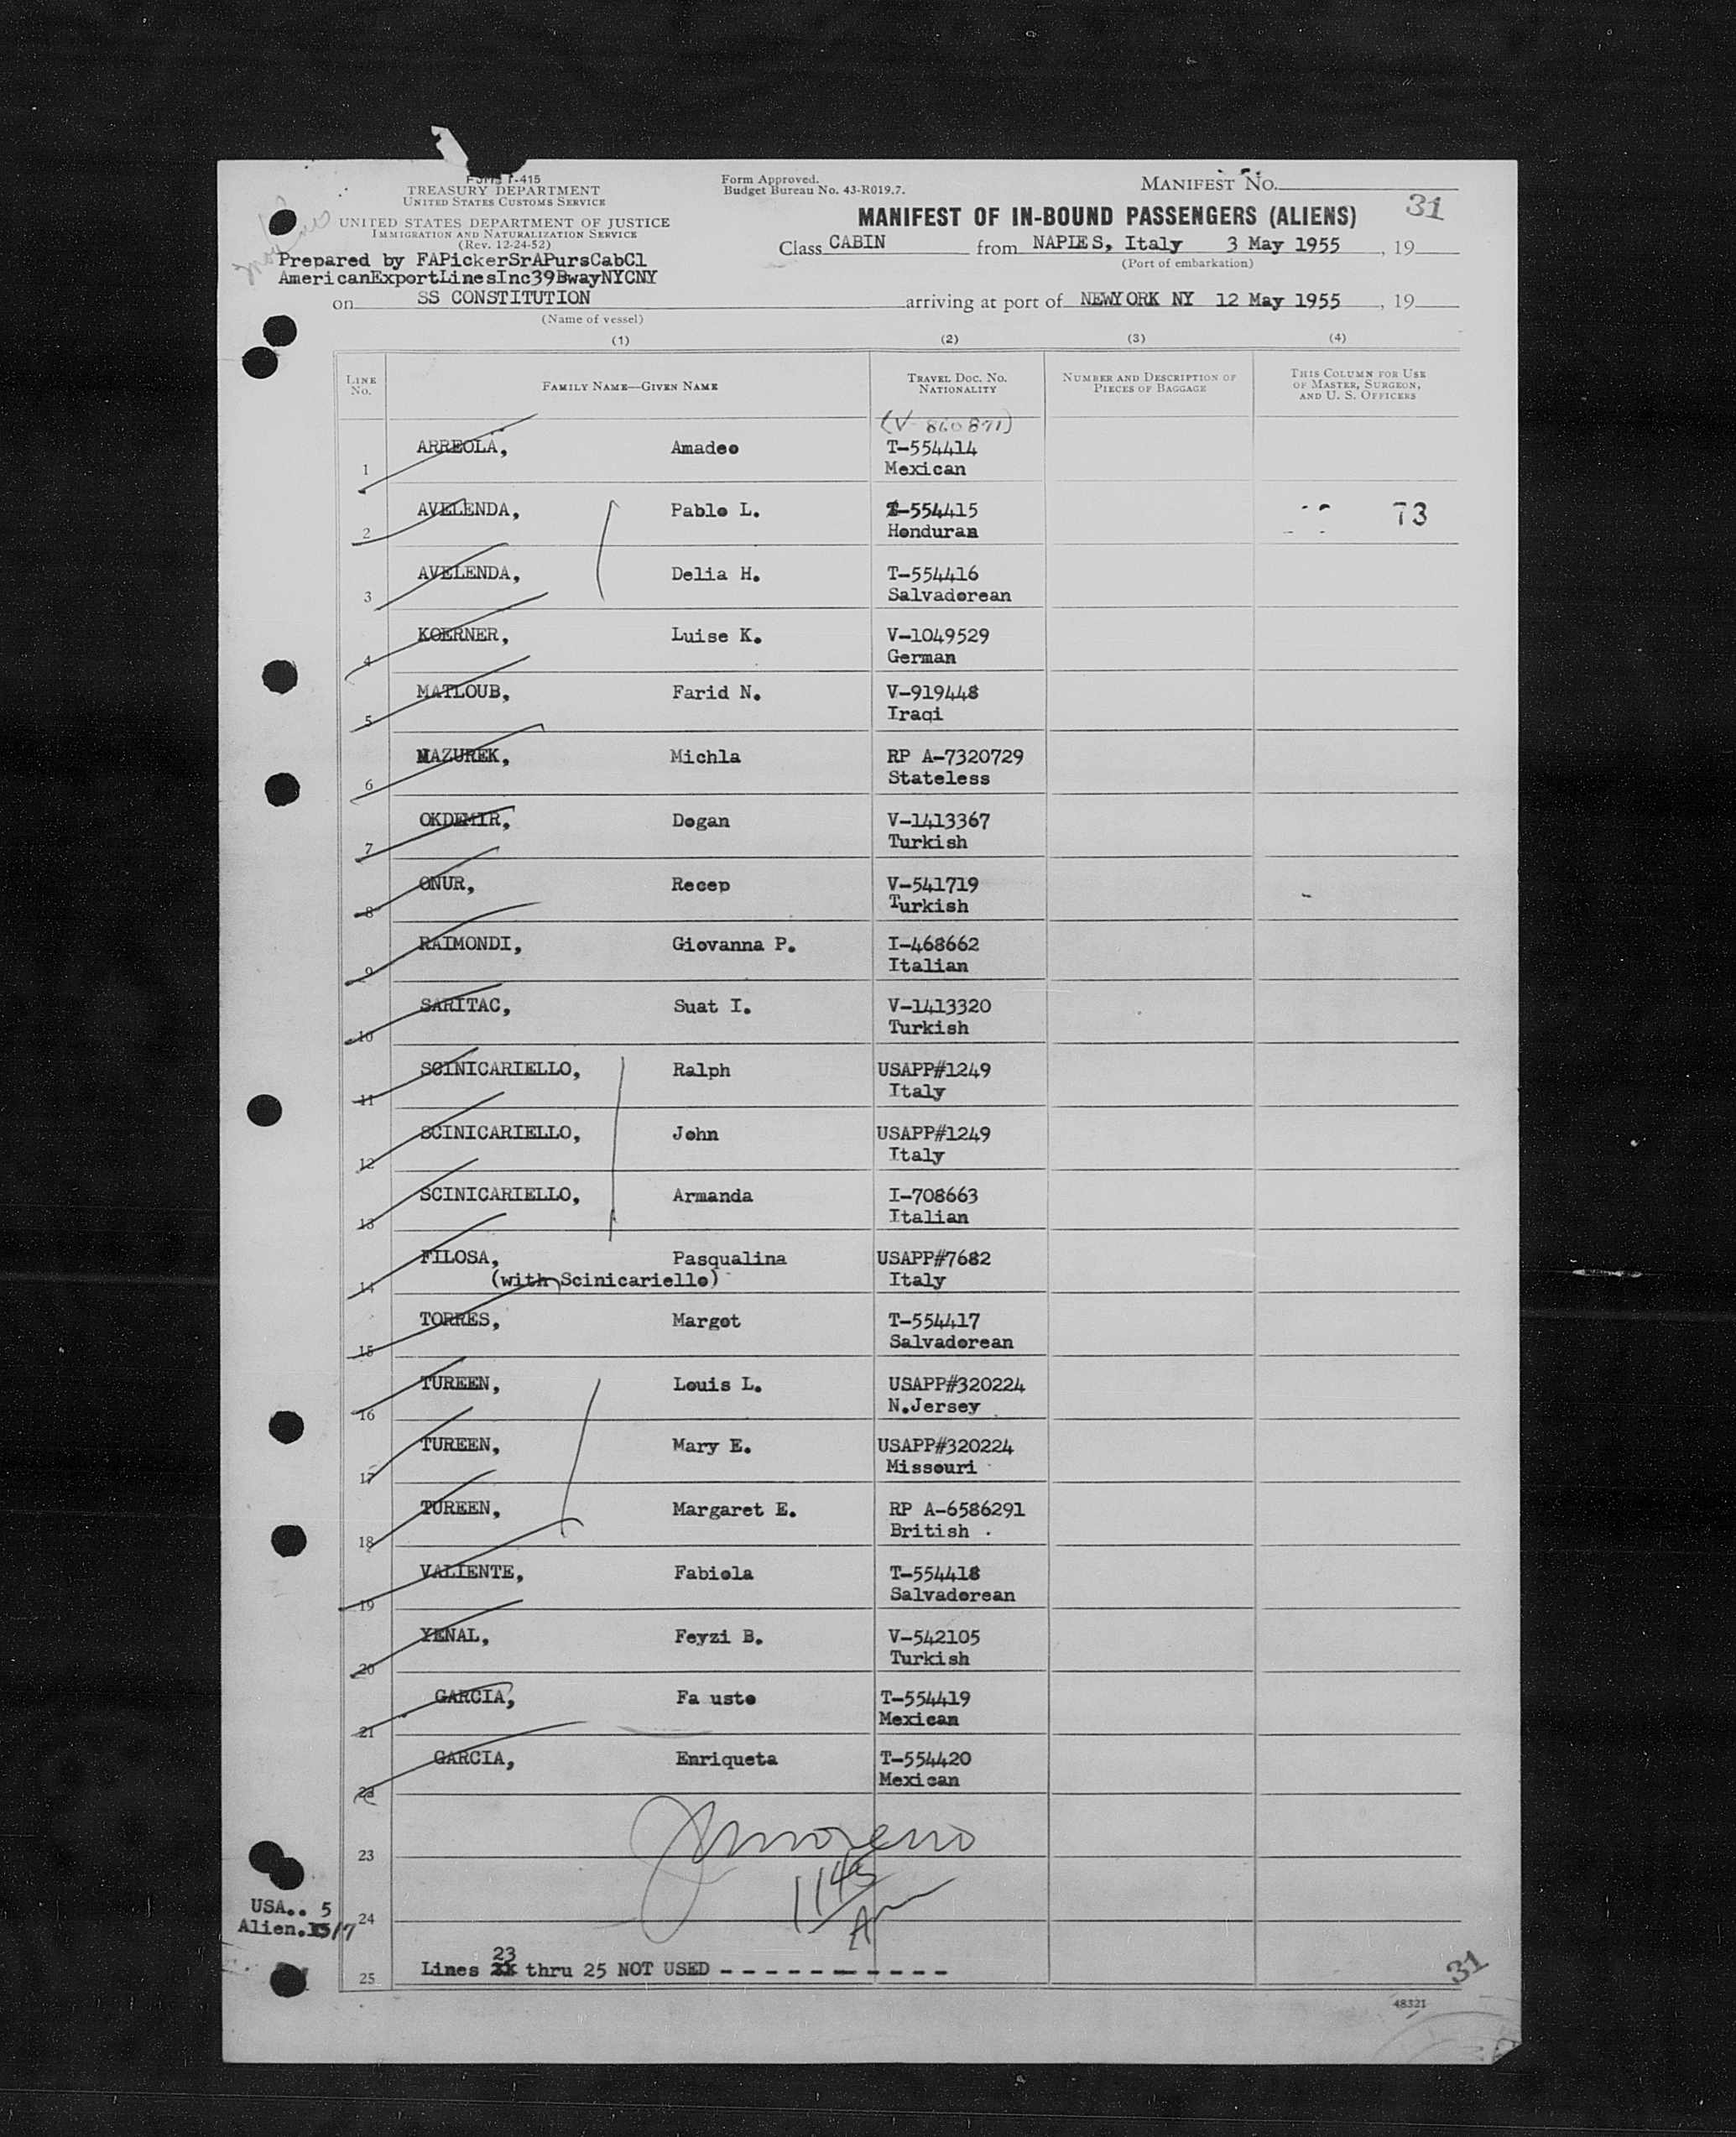 FORM I-415
TREASURY DEPARTMENT
UNITED STATES CUSTOMS SERVICE
UNITED STATES DEPARTMENT OF JUSTICE
IMMIGRATION AND NATURALIZATION SERVICE
(Rev. 12-24-52)
Form Approved.
Budget Bureau No. 43-R019.7.
MANIFEST No.
31
MANIFEST OF IN-BOUND PASSENGERS (ALIENS)
Class CABIN from NAPLES, Italy 3 May 1955, 19
(Port of embarkation)
Prepared by FAPickerSrAPursCabCl
AmericanExportLinesInc39BwayNYCNY
on SS CONSTITUTION arriving at port of NEWYORK NY 12 May 1955, 19
(Name of vessel)
(1) (2) (3) (4)
LINE No. FAMILY NAME—GIVEN NAME TRAVEL DOC. No. NATIONALITY NUMBER AND DESCRIPTION OF PIECES OF BAGGAGE THIS COLUMN FOR USE OF MASTER, SURGEON, AND U. S. OFFICERS
(V-860871)
1 ARREOLA, Amadeo T-554414
Mexican
2 AVELENDA, Pablo L. T-554415 73
Honduran
3 AVELENDA, Delia H. T-554416
Salvadorean
4 KOERNER, Luise K. V-1049529
German
5 MATLOUB, Farid N. V-919448
Iraqi
6 MAZUREK, Michla RP A-7320729
Stateless
7 OKDEMIR, Dogan V-1413367
Turkish
8 ONUR, Recep V-541719
Turkish
9 RAIMONDI, Giovanna P. I-468662
Italian
10 SARITAC, Suat I. V-1413320
Turkish
11 SCINICARIELLO, Ralph USAPP#1249
Italy
12 SCINICARIELLO, John USAPP#1249
Italy
13 SCINICARIELLO, Armanda I-708663
Italian
14 FILOSA, Pasqualina USAPP#7682
(with Scinicariello) Italy
15 TORRES, Margot T-554417
Salvadorean
16 TUREEN, Louis L. USAPP#320224
N.Jersey
17 TUREEN, Mary E. USAPP#320224
Missouri
18 TUREEN, Margaret E. RP A-6586291
British
19 VALIENTE, Fabiola T-554418
Salvadorean
20 YENAL, Feyzi B. V-542105
Turkish
21 GARCIA, Fa usto T-554419
Mexican
22 GARCIA, Enriqueta T-554420
Mexican
23
1145
A
USA.. 5
Alien. 17
24
23
25 Lines thru 25 NOT USED - - - - - - - - - - -
31
48321